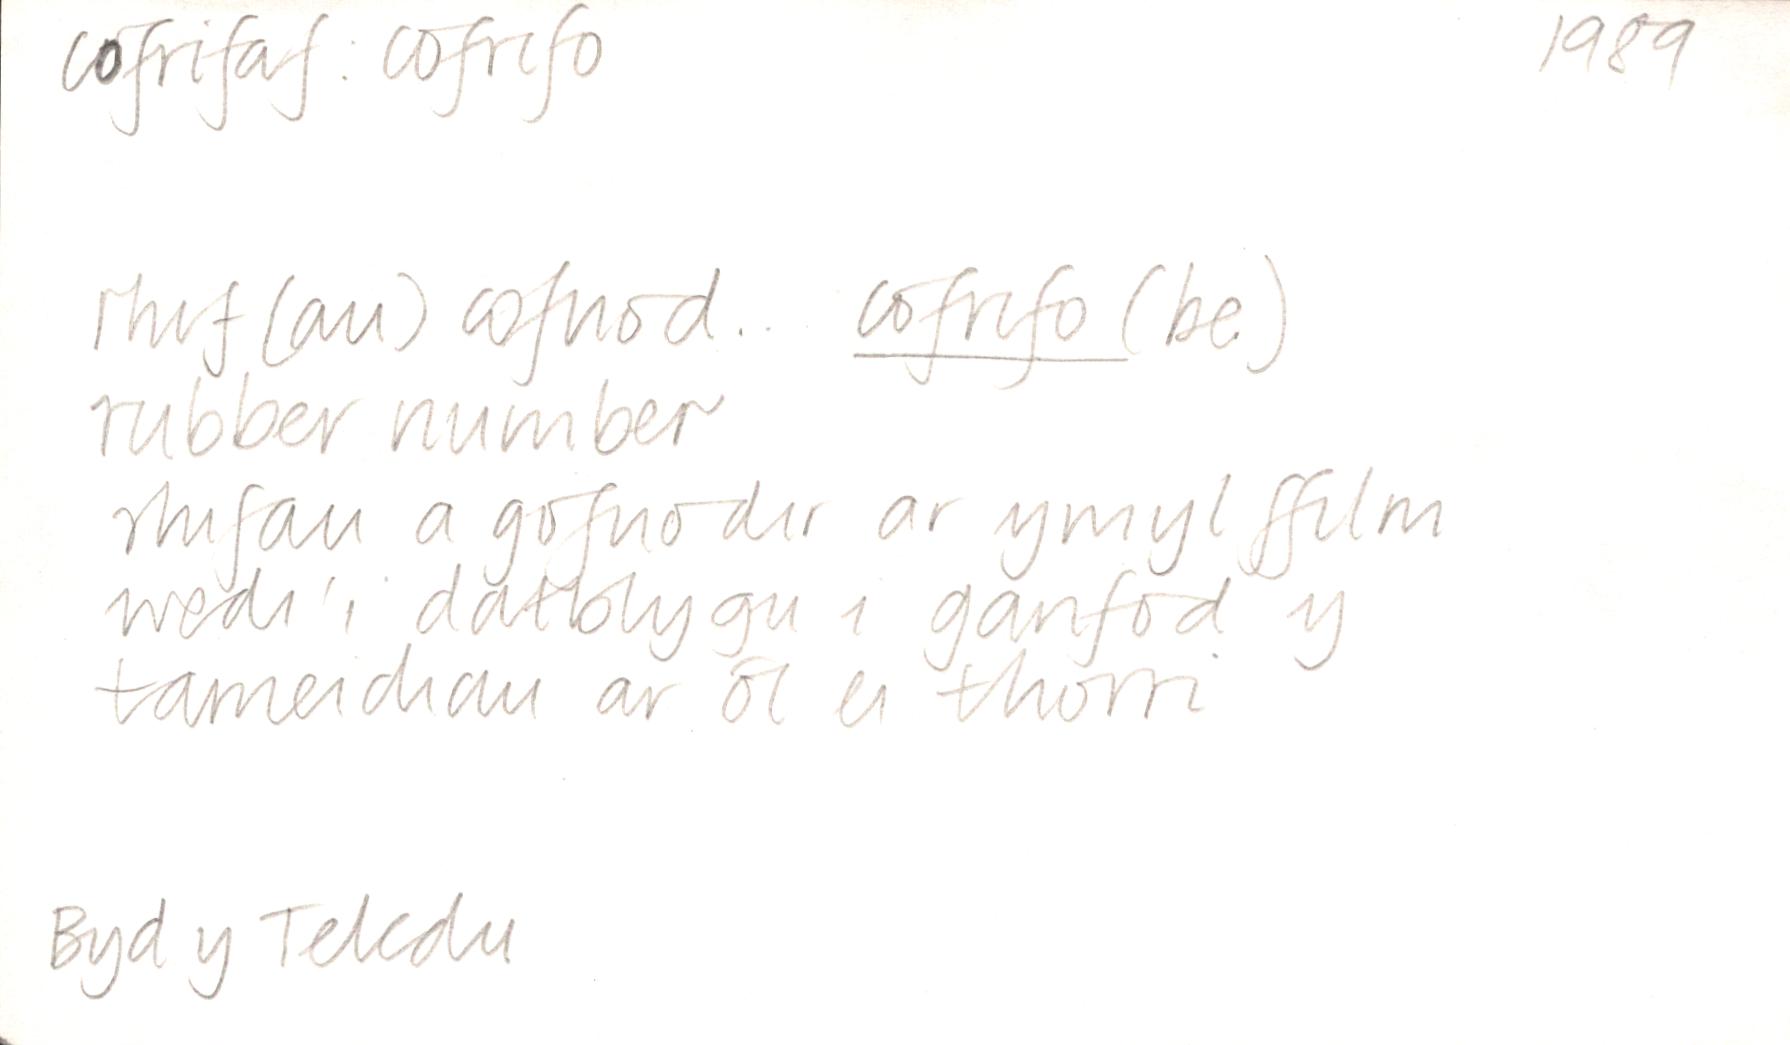 cofrifaf: cofrifo 1989
rhif(au) cofnod... cofrifo (be)
rubber number
rhifau a gofnodir ar ymyl ffilm
wedi'i datblygu i ganfod y
tameidiau ar ôl ei thorri
Byd y Teledu